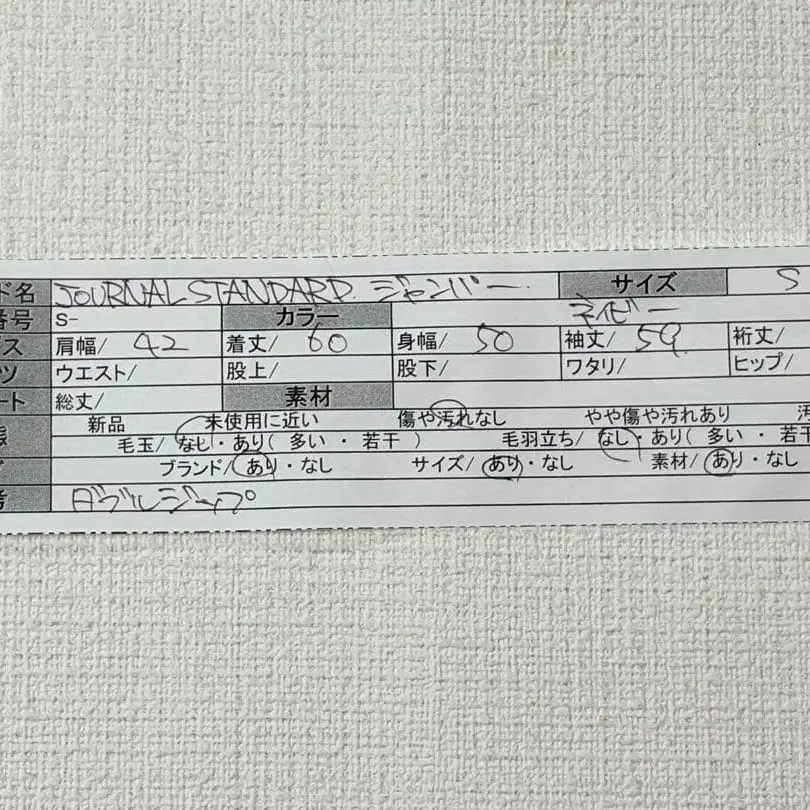 ド名 JOURNAL STANDARD. ジャンバー. サイズ S
番号 S- カラー ネイビー
プス 肩幅/ 42 着丈/ 60 身幅/ 50 袖丈/ 59 裄丈/
ツ ウエスト/ 股上/ 股下/ ワタリ/ ヒップ/
ート 総丈/ 素材
態 新品 未使用に近い 傷や汚れなし やや傷や汚れあり 汚
毛玉/ なし・あり( 多い ・ 若干 ) 毛羽立ち/ なし・あり( 多い ・ 若干
ブランド/ あり・なし サイズ/ あり・なし 素材/ あり・なし
考 ダブルジップ